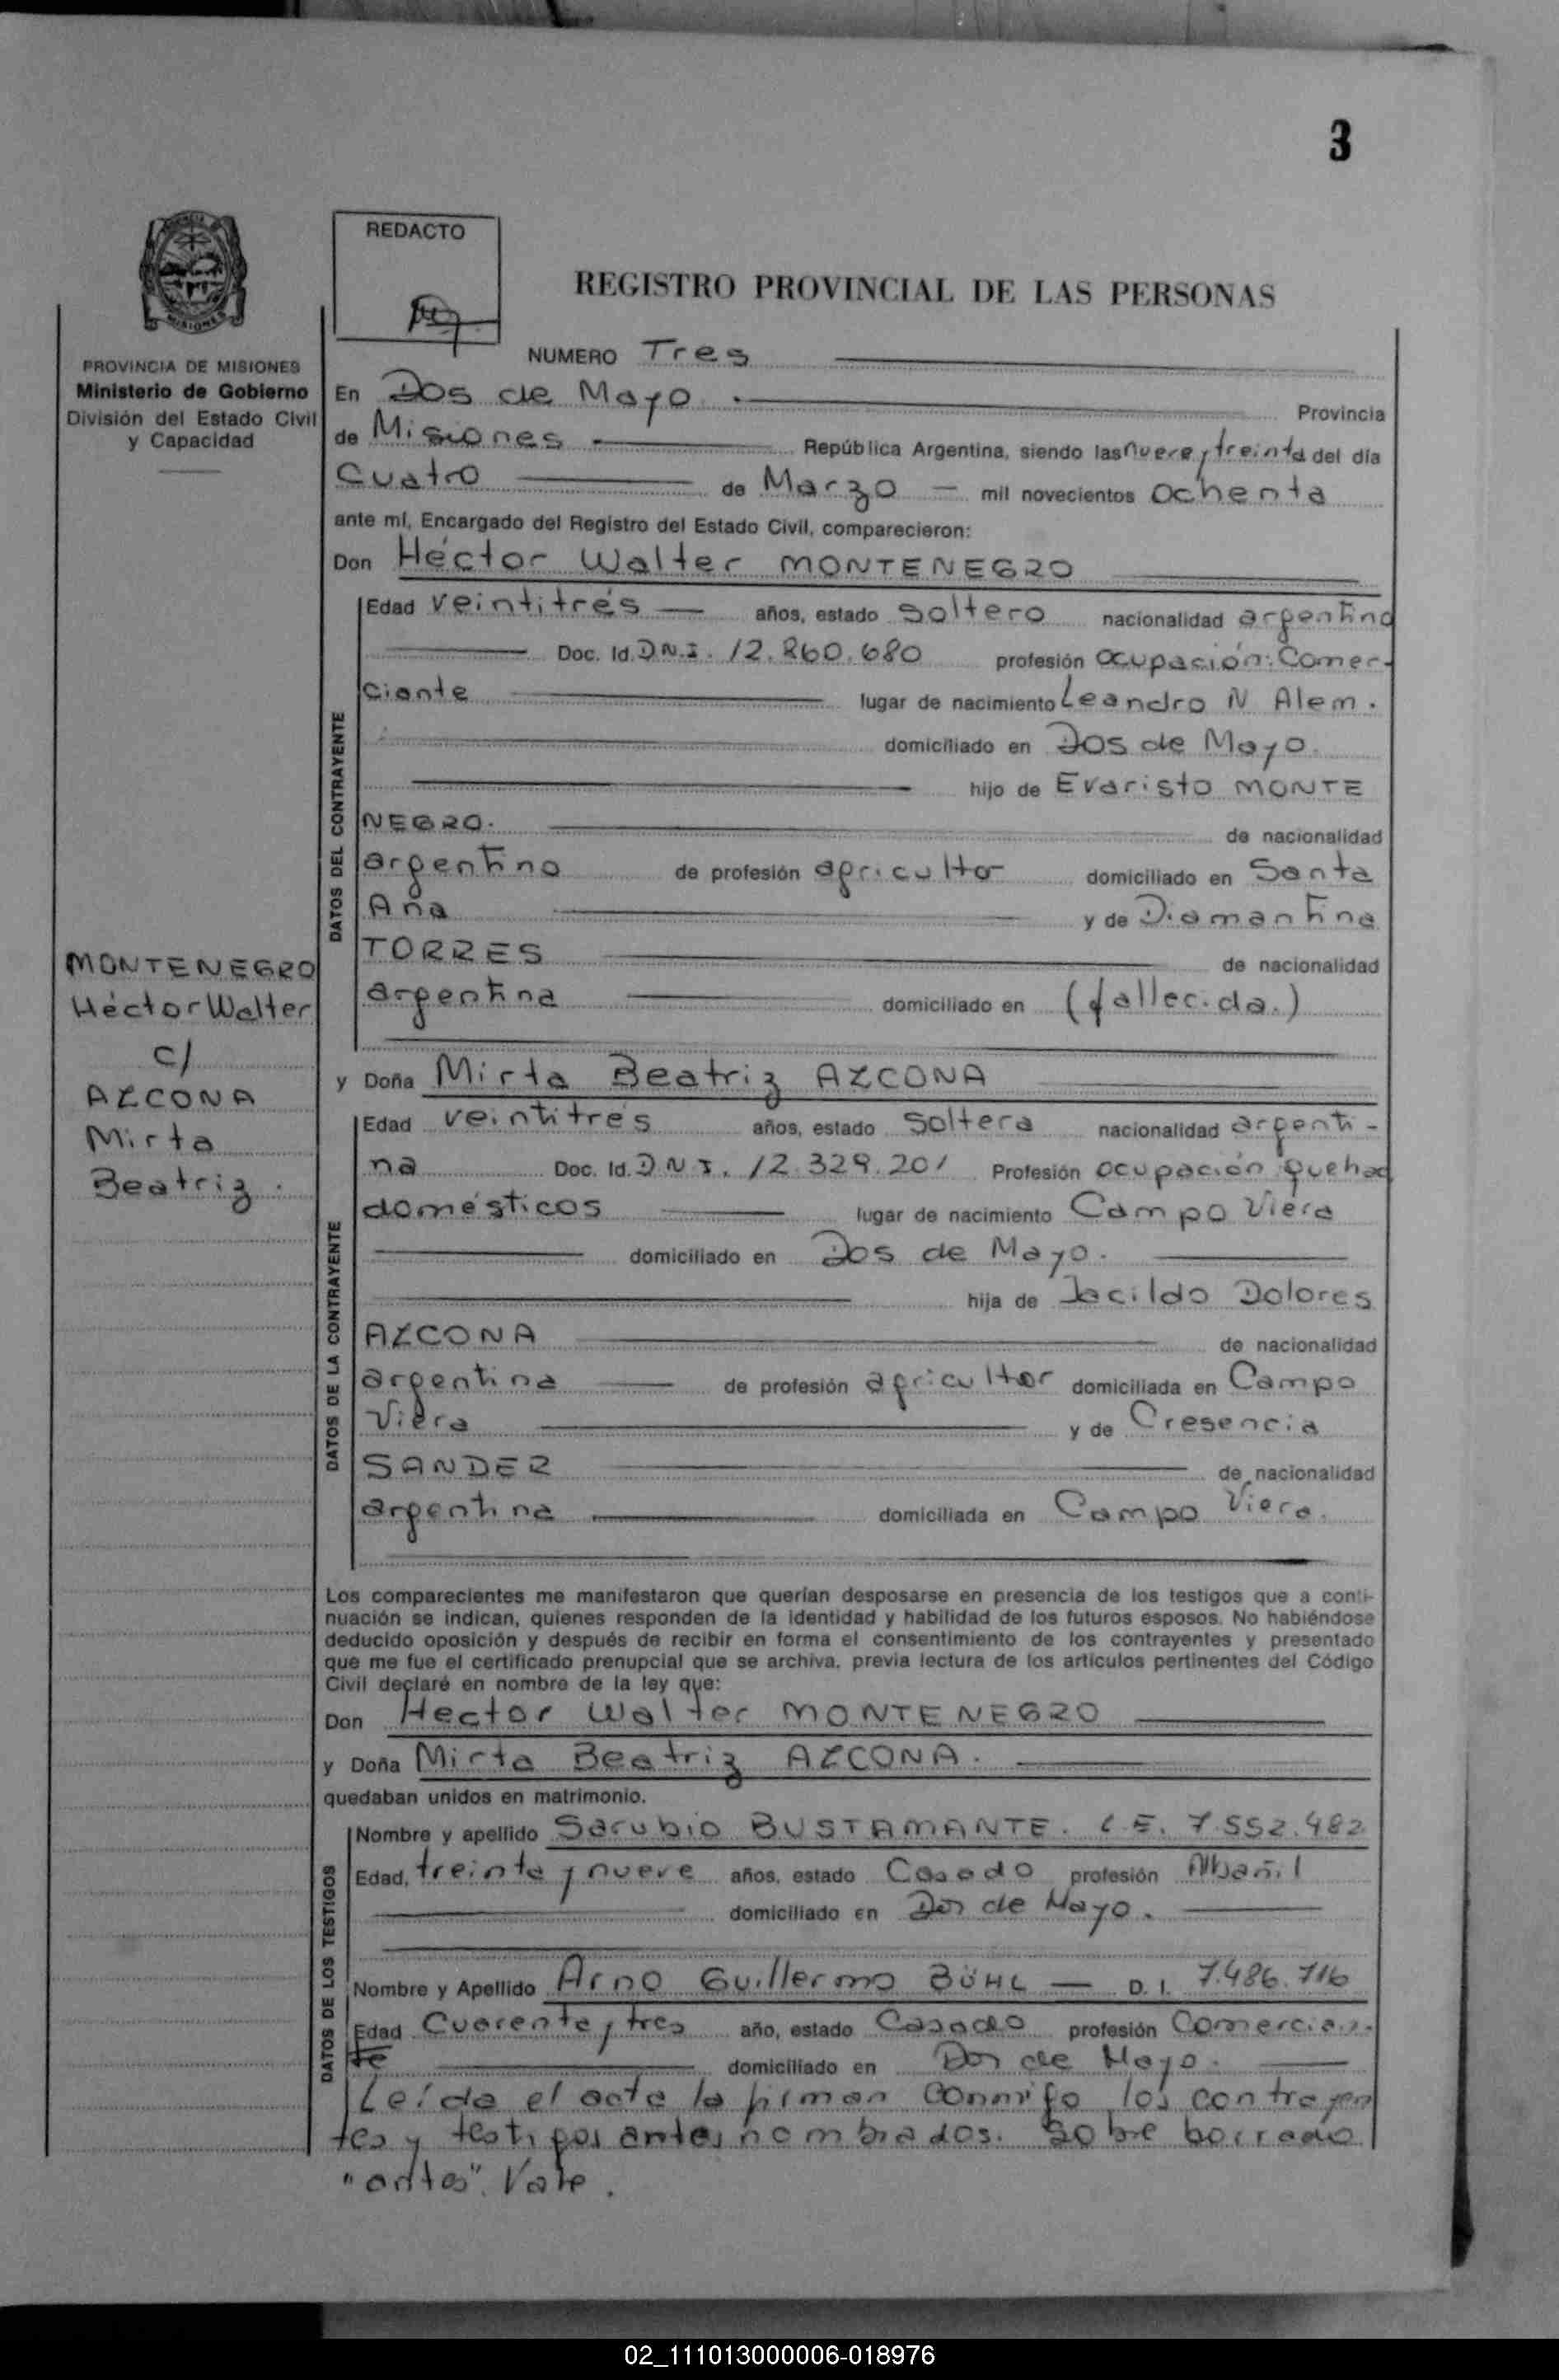 3
REDACTO
REGISTRO PROVINCIAL DE LAS PERSONAS
PROVINCIA DE MISIONES
Ministerio de Gobierno
División del Estado Civil
y Capacidad
MONTENEGRO
Héctor Walter
c/
AZCONA
Mirta
Beatriz.
NUMERO Tres
En Dos de Mayo. Provincia
de Misiones República Argentina, siendo las nueve y treinta del día
Cuatro de Marzo mil novecientos ochenta
ante mí, Encargado del Registro del Estado Civil, comparecieron:
Don Héctor Walter MONTENEGRO
DATOS DEL CONTRAYENTE
Edad veintitrés años, estado soltero nacionalidad argentino
Doc. Id. D.N.I. 12.860.680 profesión ocupación: Comer-
ciante lugar de nacimiento Leandro N Alem.
domiciliado en Dos de Mayo.
hijo de Evaristo MONTE
NEGRO. de nacionalidad
argentino de profesión agricultor domiciliado en Santa
Ana y de Diamantina
TORRES de nacionalidad
argentina domiciliado en (fallecida.)
y Doña Mirta Beatriz AZCONA
DATOS DE LA CONTRAYENTE
Edad veintitrés años, estado soltera nacionalidad argenti-
na Doc. Id. D.N.I. 12.329.201 Profesión ocupación quehac
domésticos lugar de nacimiento Campo Viera
domiciliado en Dos de Mayo.
hija de Jacildo Dolores
AZCONA de nacionalidad
argentina de profesión agricultor domiciliada en Campo
Viera y de Cresencia
SANDER de nacionalidad
argentina domiciliada en Campo Viera.
Los comparecientes me manifestaron que querían desposarse en presencia de los testigos que a conti-
nuación se indican, quienes responden de la identidad y habilidad de los futuros esposos. No habiéndose
deducido oposición y después de recibir en forma el consentimiento de los contrayentes y presentado
que me fue el certificado prenupcial que se archiva, previa lectura de los artículos pertinentes del Código
Civil declaré en nombre de la ley que:
Don Hector Walter MONTENEGRO
y Doña Mirta Beatriz AZCONA.
quedaban unidos en matrimonio.
DATOS DE LOS TESTIGOS
Nombre y apellido Sarubio BUSTAMANTE. L.E. 7.552.482
Edad, treinta y nueve años, estado Casado profesión Albañil
domiciliado en Dos de Mayo.
Nombre y Apellido Arno Guillermo BÜHL D. I. 7.486.716
Edad Cuarenta y tres año, estado Casado profesión Comercian-
te domiciliado en Dos de Mayo.
Leída el acta la firman conmigo los contrayen
tes y testigos antes nombrados. Sobre borrado
"antes". Vale.
02_111013000006-018976